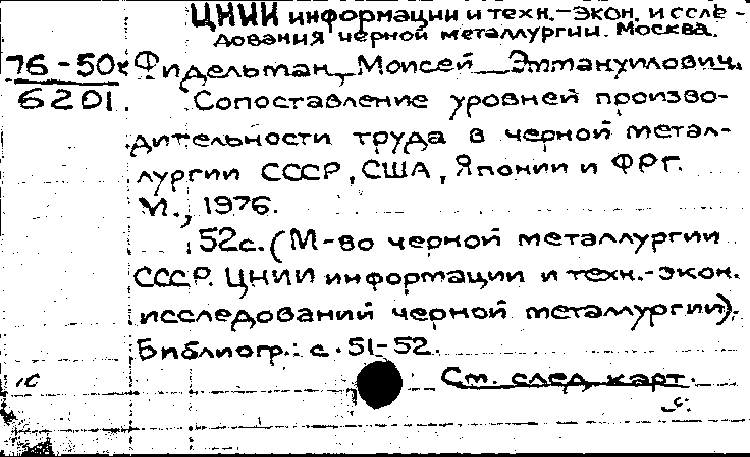 ЦНИИ информации и техн.-экон. иссле-
дования черной металлургии. Москва.
76-50к Фидельман, Моисей Эммануилович.
6201. Сопоставление уровней произво-
дительности труда в черной метал-
лургии СССР, США, Японии и ФРГ.
М., 1976.
52с. (М-во черной металлургии
СССР. ЦНИИ информации и техн.-экон.
исследований черной металлургии).
Библиогр.: с. 51-52.
См. след. карт.